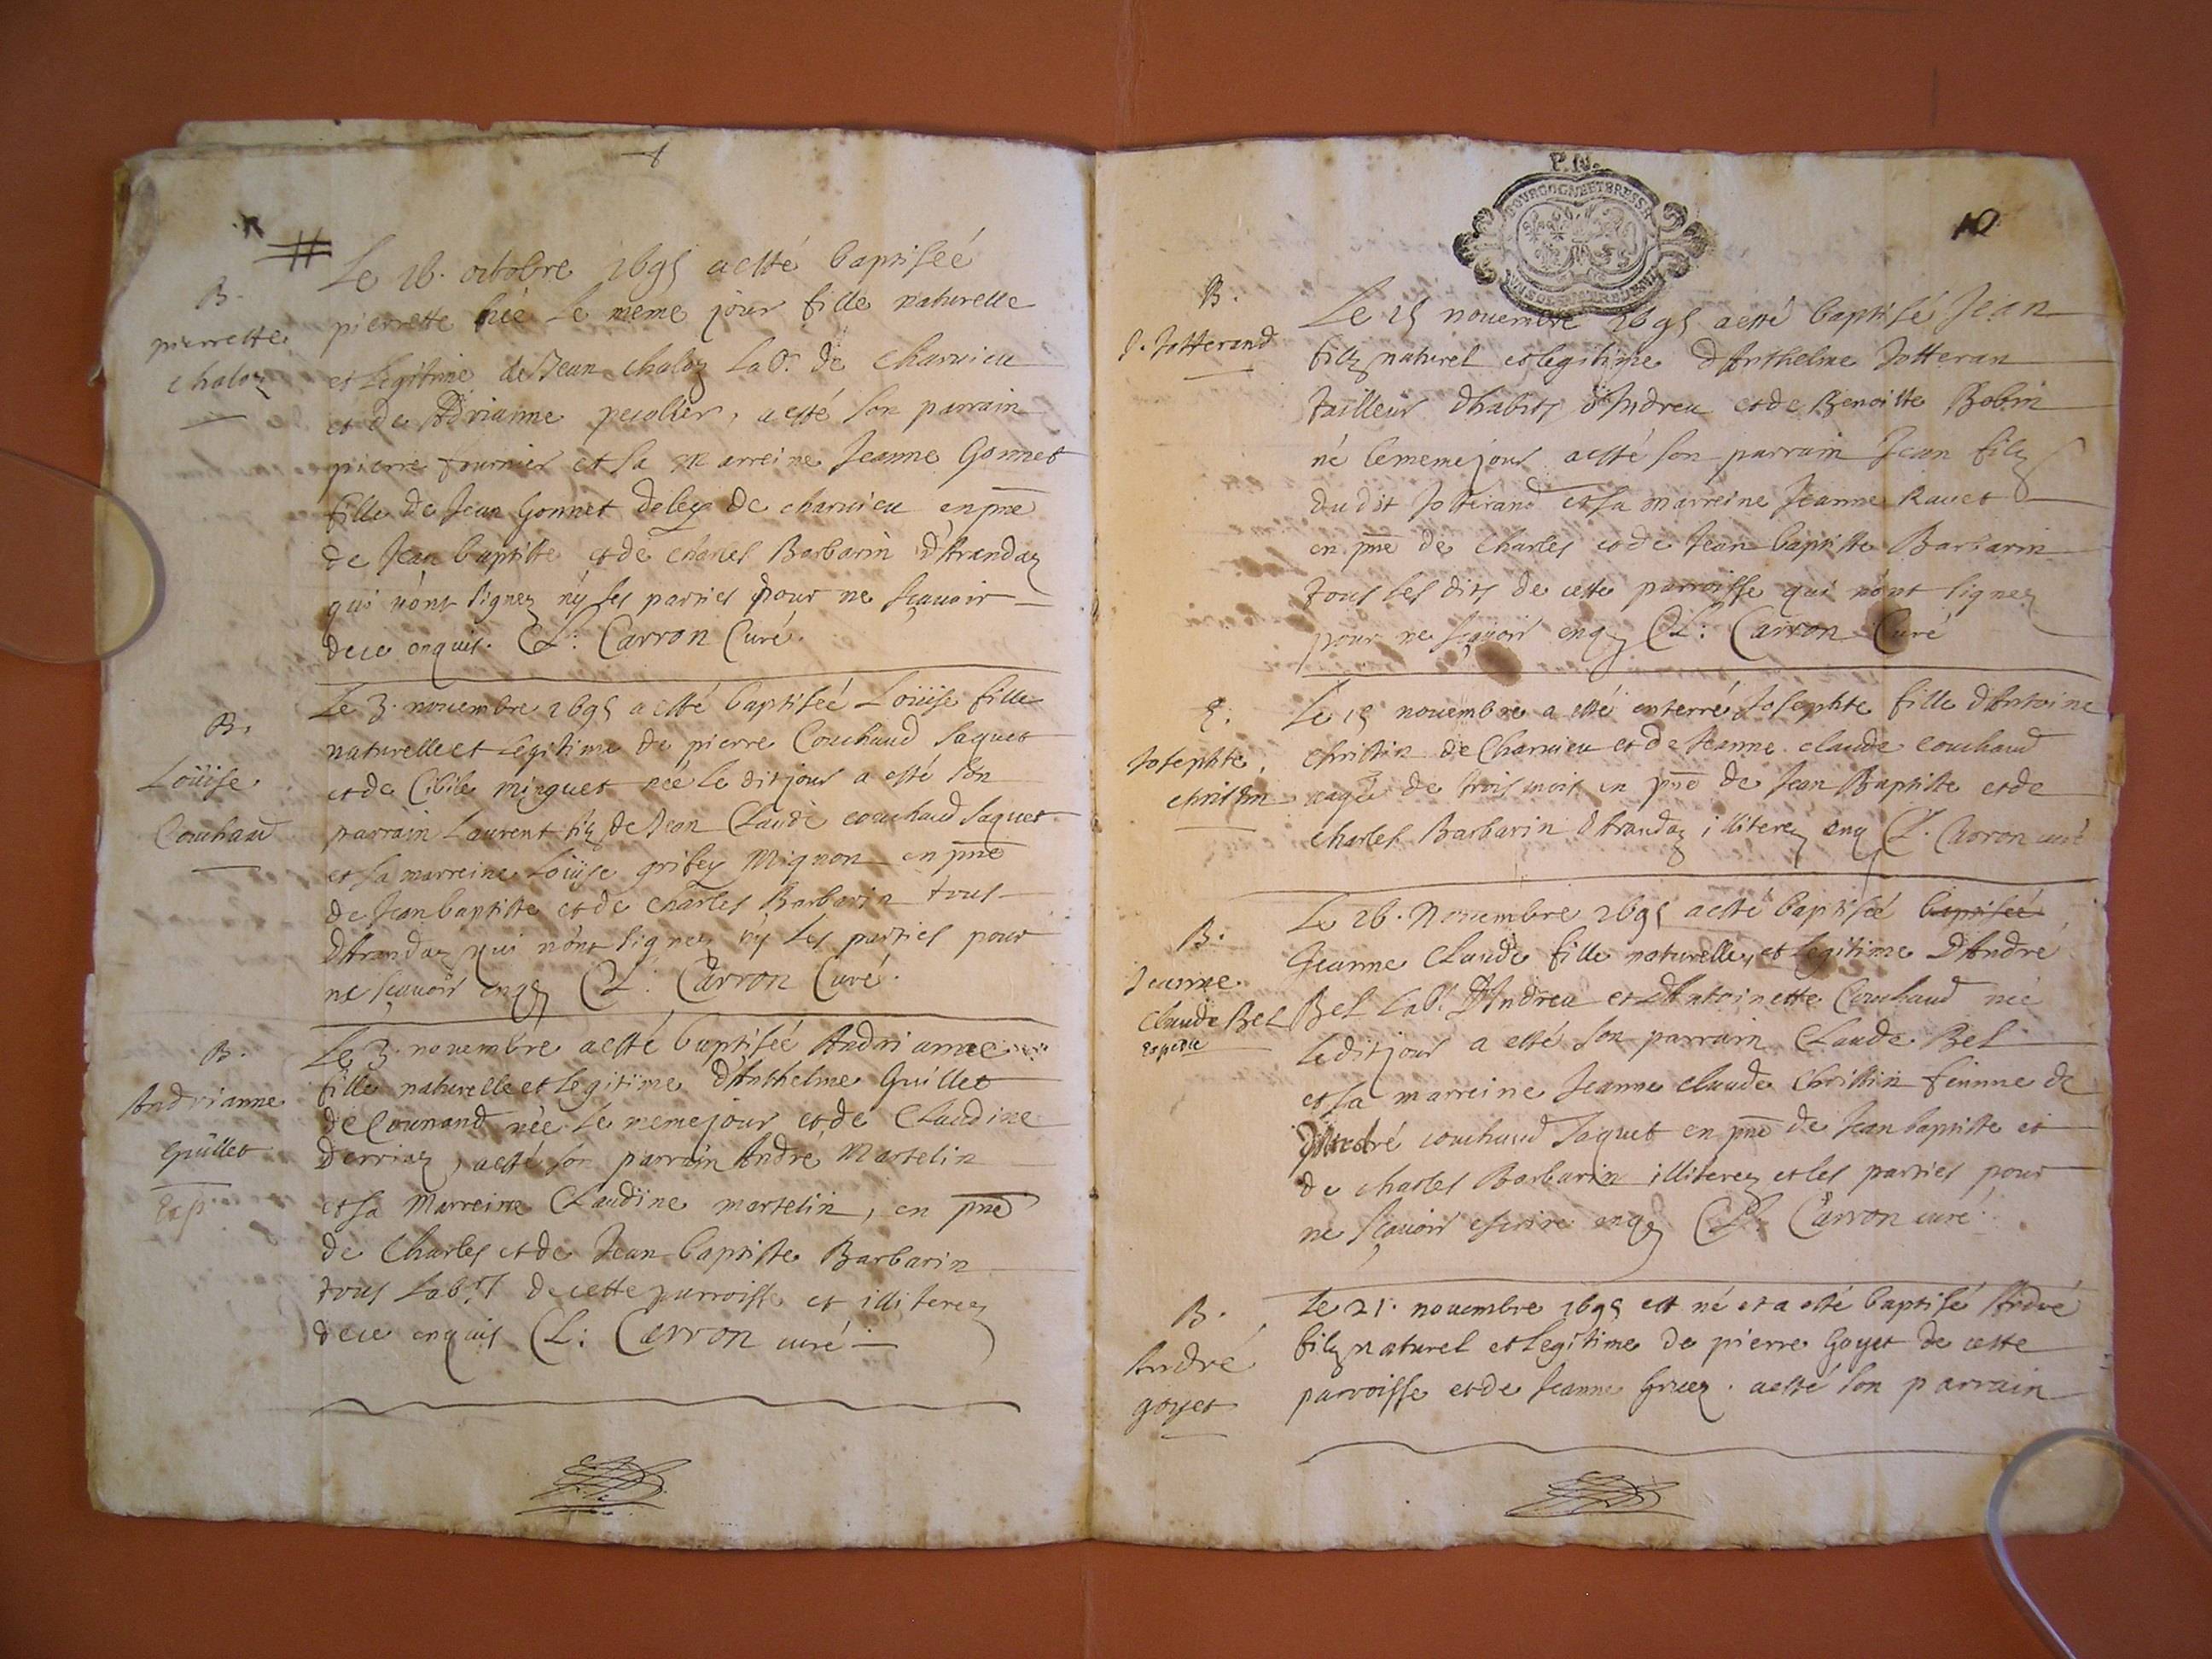 Le 16. octobre 1695 a esté baptiseé
B.
pierrette
chaloz
pierrette neé le meme jour fille naturelle
et legitime de Jean chaloz Lab.r de charvieu
et de Adrianne pecolier, a esté son parrain
pierre fournier et sa marreine Jeanne Gonnet
fille de Jean Gonnet deley de charvieu en pñe
de Jean baptiste et de charles Barbarin d'Arandaz
qui n'ont signez ny les parties pour ne sçavoir
de ce enquis. Cl: Carron Curé.
B.
Loüise
Couchaud
Le 3. novembre 1695 a esté baptiseé Loüise fille
naturelle et legitime de pierre Couchaud Jaquet
et de Cibile minguet neé le dit jour a esté son
parrain Laurent filz de Jean Claude couchaud Jaquet
et sa marreine Loüyse grifey Mignon en pñe
de Jean baptiste et de charles Barbarin tous
d'Arandaz qui n'ont signez ny les parties pour
ne sçavoir enqz Cl: Carron Curé.
B.
Andrianne
Guillet
Exp.
Le 3. novembre a esté baptiseé Andrianne
fille naturelle et legitime d'Anthelme Guillet
de Counand neé le meme jour et de Claudine
Derriaz, a esté son parrain André Martelin
et sa Marreine Claudine martelin, en pñe
de Charles et de Jean baptiste Barbarin
tous Lab.rs de cette parroisse et illiterez
de ce enquis Cl: Carron curé
P.N.
BOURGOGNE ET BRESSE
10
B.
J. Jotterand
Le 15 novembre 1695 a esté baptisé Jean
filz naturel et legitime d'Anthelme Jotteran
tailleur d'habits d'Indreu et de Benoitte Bobin
né le meme jour a esté son parrain Jean filz
du dit Jotterand et sa marreine Jeanne Ravet
en pñe de charles et de Jean baptiste Barbarin
tous les dits de cette parroisse qui n'ont signez
pour ne sçavoir enqz Cl: Carron Curé
E.
Josephte
christin
Le 15 novembre a esté enterré Josephte fille d'Antoine
christin de Charvieu et de Jeanne claude couchaud
aageé de trois mois en pñe de Jean Baptiste et de
charles Barbarin d'Arandaz illiterez enqz Cl. Carron curé
B.
Jeanne
Claude Bel
Expedie
Le 16. Novembre 1695 a esté baptiseé baptiseé
Jeanne Claude fille naturelle, et legitime d'André
Bel Lab.r d'Indreu et d'Antoinette Couchaud neé
le dit jour a esté son parrain Claude Bel
et sa marreine Jeanne claude Christin femme de
André couchaud Jaquet en pñe de Jean baptiste et
de charles Barbarin illiterez et les parties pour
ne sçavoir escrire enqz Cl: Carron curé.
B.
André
goyet
Le 21. novembre 1695 est né et a esté baptisé André
filz naturel et legitime de pierre Goyet de cette
parroisse et de Jeanne Gruez. a esté son parrain